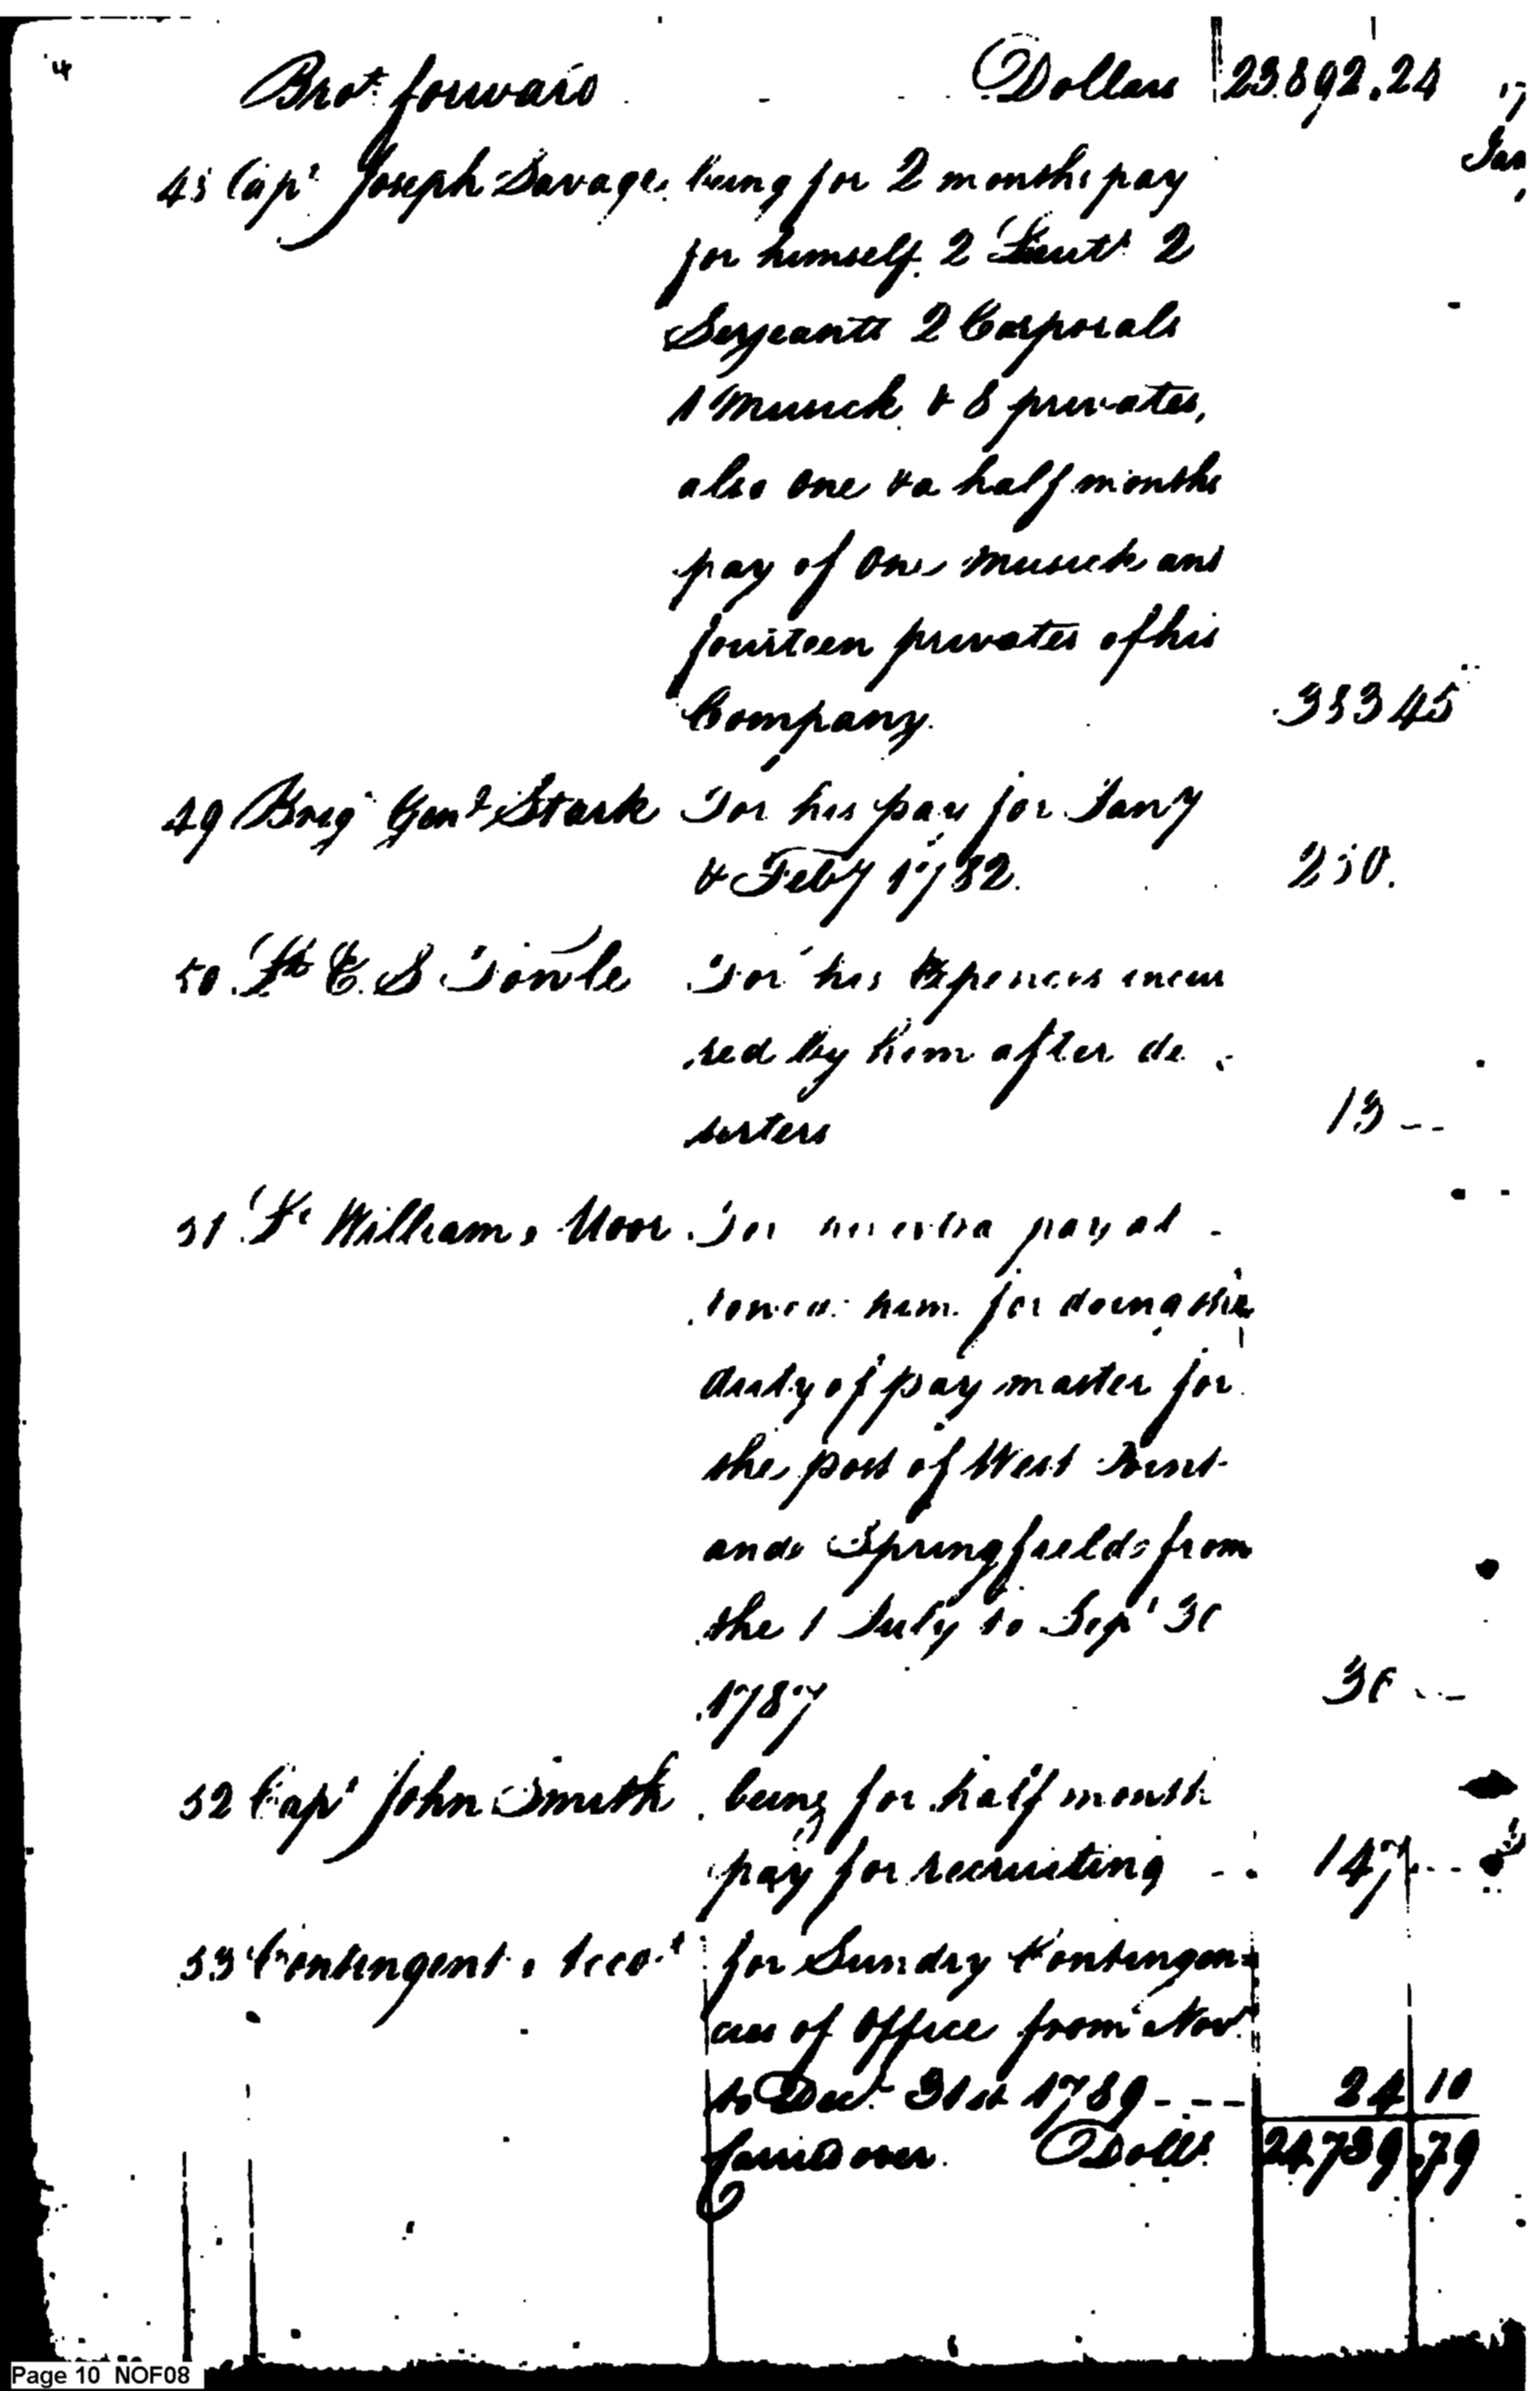 4
Brot. forward Dollars 23.892.24
48 Capt Joseph Savage. being for 2 months pay
for himself. 2 Lieuts 2
Serjeants 2 Corporals
1 Musick & 8 privates,
also one & a half months
pay of One musick and
fourteen privates of his
Company. 383 45
49 Brig Genl Stark For his pay for Jany
& Feby 1782. 250.
50. Lt E. S Fowle For his Expences incur
red by him after de -
serters 13 --
51 Lt William Moor For his extra pay al -
lowed him for doing the
duty of pay master for
the post of West Point
and Springfields from
the 1 July to Sept 30
1787 30 --
52 Capt John Smith being for half month
pay for recruiting -- 147 --
53 Contingent Accot for Sundry Contingen-
cies of Office from Nov.
to Dec. 31st 1789 ---- 24 10
Carried over. Dolls. 24739 79
Page 10 NOF08